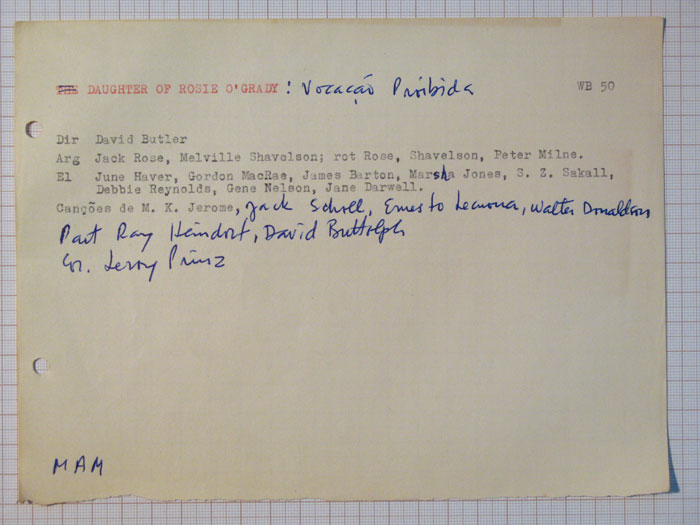 THE DAUGHTER OF ROSIE O'GRADY : Vocação Proibida WB 50
Dir David Butler
Arg Jack Rose, Melville Shavelson; rot Rose, Shavelson, Peter Milne.
El June Haver, Gordon MacRae, James Barton, Marsha Jones, S. Z. Sakall,
Debbie Reynolds, Gene Nelson, Jane Darwell.
Canções de M. K. Jerome, Jack Scholl, Ernesto Lecuona, Walter Donaldson
Part Ray Heindorf, David Buttolph
Cor. Leroy Prinz
MAM